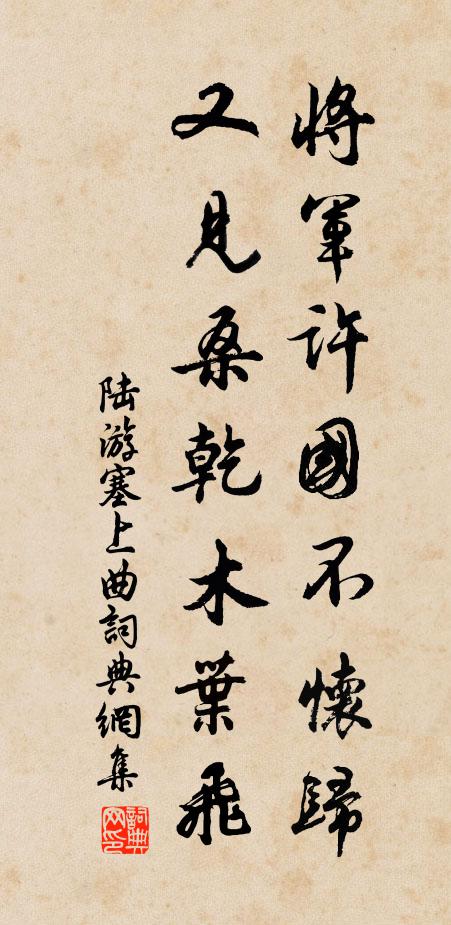 將軍許國不懷歸
又見桑乾木葉飛
陸游塞上曲詞典網集
詞典
网印